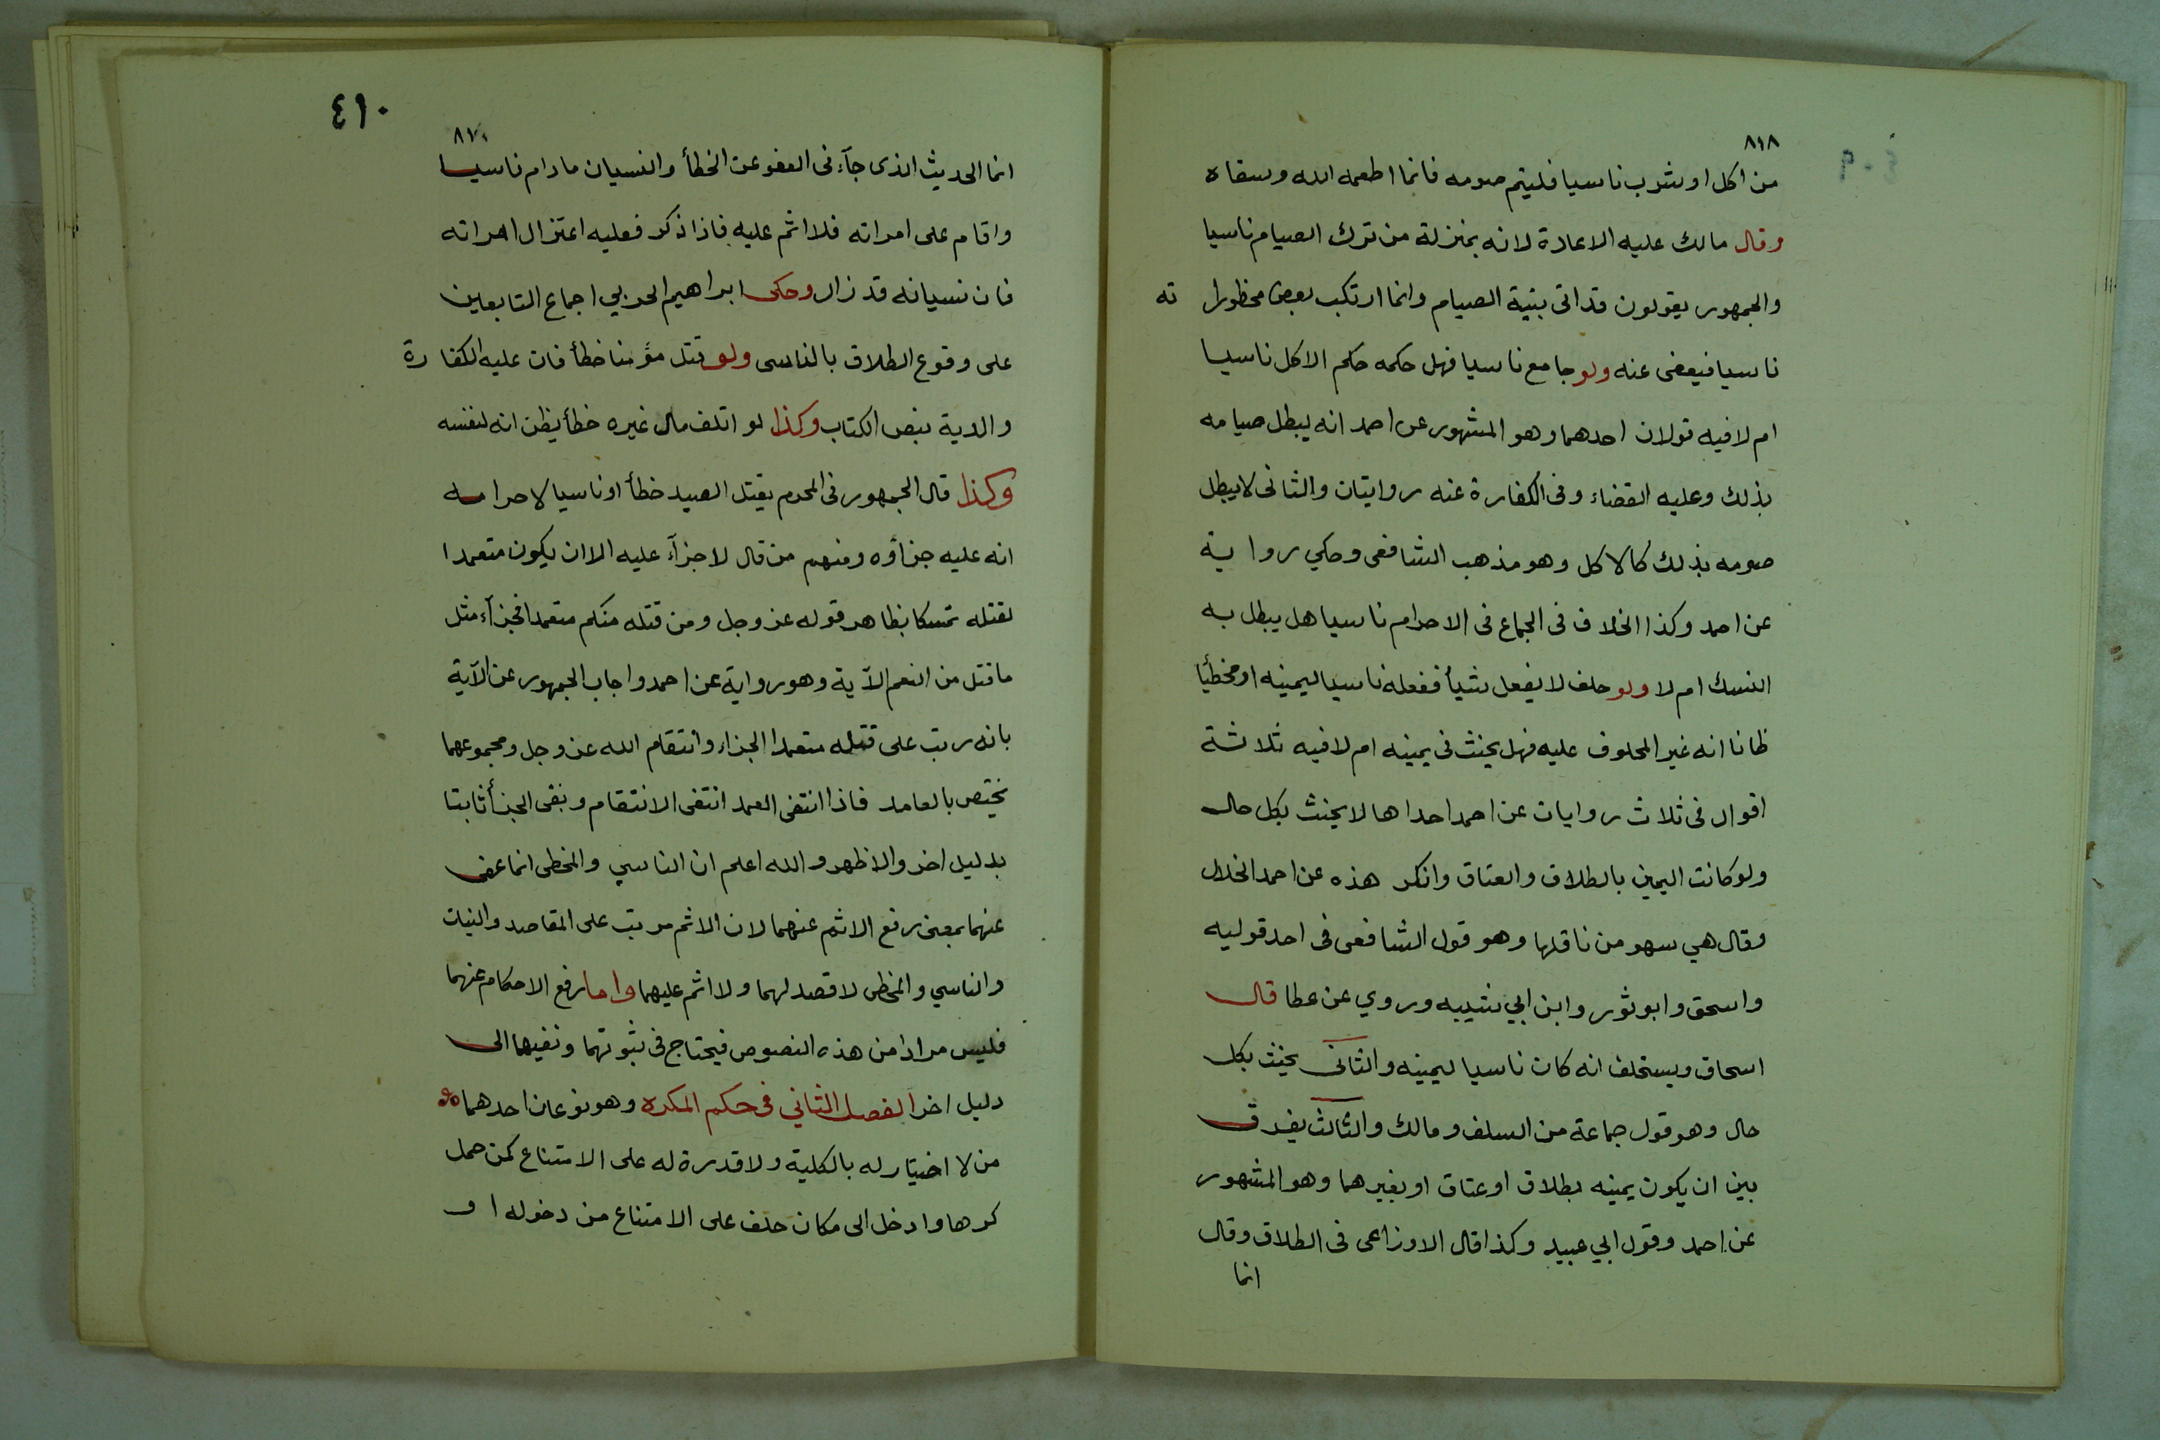 ٨١٨
من اكل او شرب ناسيا فليتم صومه فانما اطعمه الله وسقاه
وقال مالك عليه الاعادة لانه بمنزلة من ترك الصيام ناسيا
والجمهور يقولون قد اتى بنية الصيام وانما ارتكب بعض محظورا ته
ناسيا فيعفى عنه ولو جامع ناسيا فهل حكمه حكم الاكل ناسيا
ام لا فيه قولان احدهما وهو المشهور عن احمد انه يبطل صيامه
بذلك وعليه القضاء وفى الكفارة عنه روايتان والثانى لا يبطل
صومه بذلك كالاكل وهو مذهب الشافعى وحكي رواية
عن احمد وكذا الخلاف فى الجماع فى الاحرام ناسيا هل يبطل به
النسك ام لا ولو حلف لا يفعل شيأ ففعله ناسيا ليمينه او مخطئا
ظانا انه غير المحلوف عليه فهل يحنث فى يمينه ام لا فيه ثلاثة
اقوال فى ثلاث روايات عن احمد احداها لا يحنث بكل حال
ولو كانت اليمين بالطلاق والعتاق وانكر هذه عن احمد الخلال
وقال هي سهو من ناقلها وهو قول الشافعى فى احد قوليه
واسحق وابو ثور وابن ابي شيبه وروي عن عطا قال
اسحاق ويستحلف انه كان ناسيا ليمينه والثانى يحنث بكل
حال وهو قول جماعة من السلف ومالك والثالث يفرق
بين ان يكون يمينه بطلاق او عتاق او بغيرهما وهو المشهور
عن احمد وقول ابي عبيد وكذا قال الاوزاعى فى الطلاق وقال
انما
٤١٠
انما الحديث الذى جآء فى العفو عن الخطأ والنسيان مادام ناسيا
واقام على امراته فلا اثم عليه فاذا ذكر فعليه اعتزال امراته
فان نسيانه قد زال وحكى ابراهيم الحربي اجماع التابعين
على وقوع الطلاق بالناسى ولو قتل مؤمنا خطأ فان عليه الكفارة
والدية بنص الكتاب وكذا لو اتلف مال غيره خطأ يظن انه لنفسه
وكذا قال الجمهور فى المحرم يقتل الصيد خطأ او ناسيا لاحرامه
انه عليه جزاؤه ومنهم من قال لا جزآء عليه الا ان يكون متعمدا
لقتله تمسكا بظاهر قوله عز وجل ومن قتله منكم متعمدا فجزآء مثل
ما قتل من النعم الآية وهو رواية عن احمد واجاب الجمهور عن الآية
بانه رتب على قتله متعمدا الجزاء وانتقام الله عز وجل ومجموعهما
يختص بالعامد فاذا انتفى العمد انتفى الانتقام وبقى الجزأ ثابتا
بدليل اخر والاظهر والله اعلم ان الناسي والمخطى انما عفى
عنهما بمعنى رفع الاثم عنهما لان الاثم مرتب على المقاصد والنيات
والناسي والمخطى لا قصد لهما ولا اثم عليهما واما رفع الاحكام عنهما
فليس مرادا من هذه النصوص فيحتاج فى ثبوتها ونفيها الى
دليل اخر الفصل الثاني فى حكم المكره وهو نوعان احدهما
من لا اختيار له بالكلية ولا قدرة له على الامتناع كمن حمل
كرها وادخل الى مكان حلف على الامتناع من دخوله او